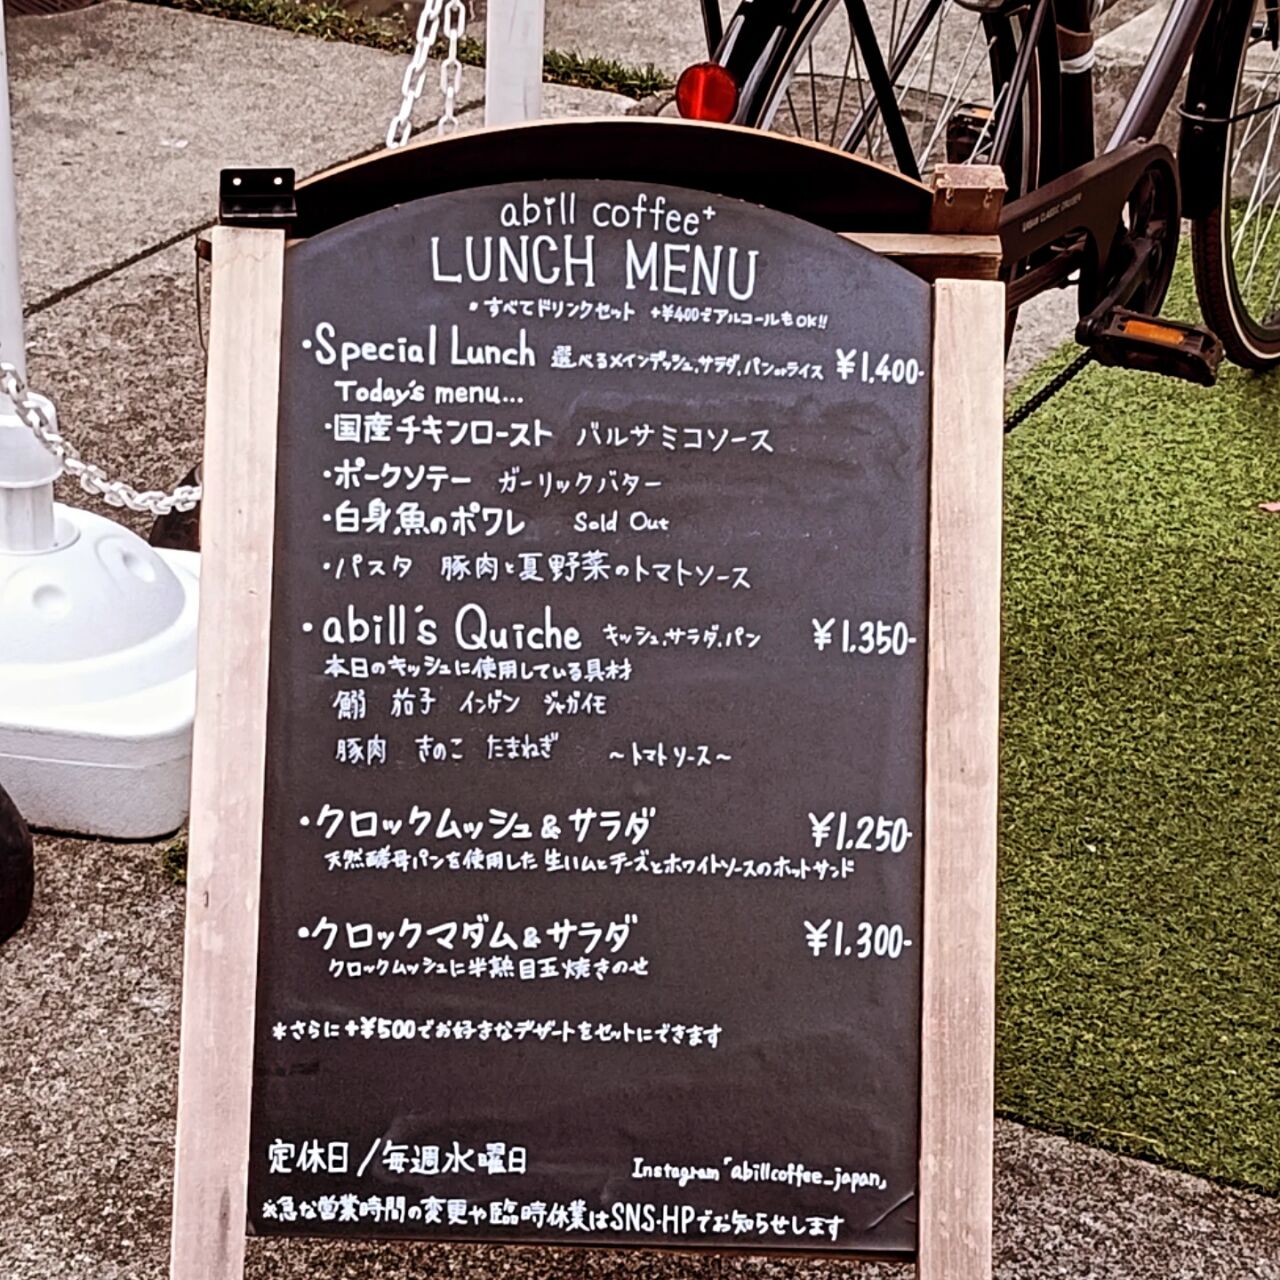 abill coffee+
LUNCH MENU
* すべてドリンクセット +¥400でアルコールもOK!!
・Special Lunch 選べるメインデッシュ,サラダ,パンorライス ¥1,400-
Today's menu...
・国産チキンロースト バルサミコソース
・ポークソテー ガーリックバター
・白身魚のポワレ Sold Out
・パスタ 豚肉と夏野菜のトマトソース
・abill's Quiche キッシュ,サラダ,パン ¥1,350-
本日のキッシュに使用している具材
鰯 茄子 インゲン ジャガイモ
豚肉 きのこ たまねぎ 〜トマトソース〜
・クロックムッシュ&サラダ ¥1,250-
天然酵母パンを使用した 生ハムとチーズとホワイトソースのホットサンド
・クロックマダム&サラダ ¥1,300-
クロックムッシュに半熟目玉焼きのせ
*さらに+¥500でお好きなデザートをセットにできます
定休日/毎週水曜日 Instagram「abillcoffee_japan」
※急な営業時間の変更や臨時休業はSNS・HPでお知らせします